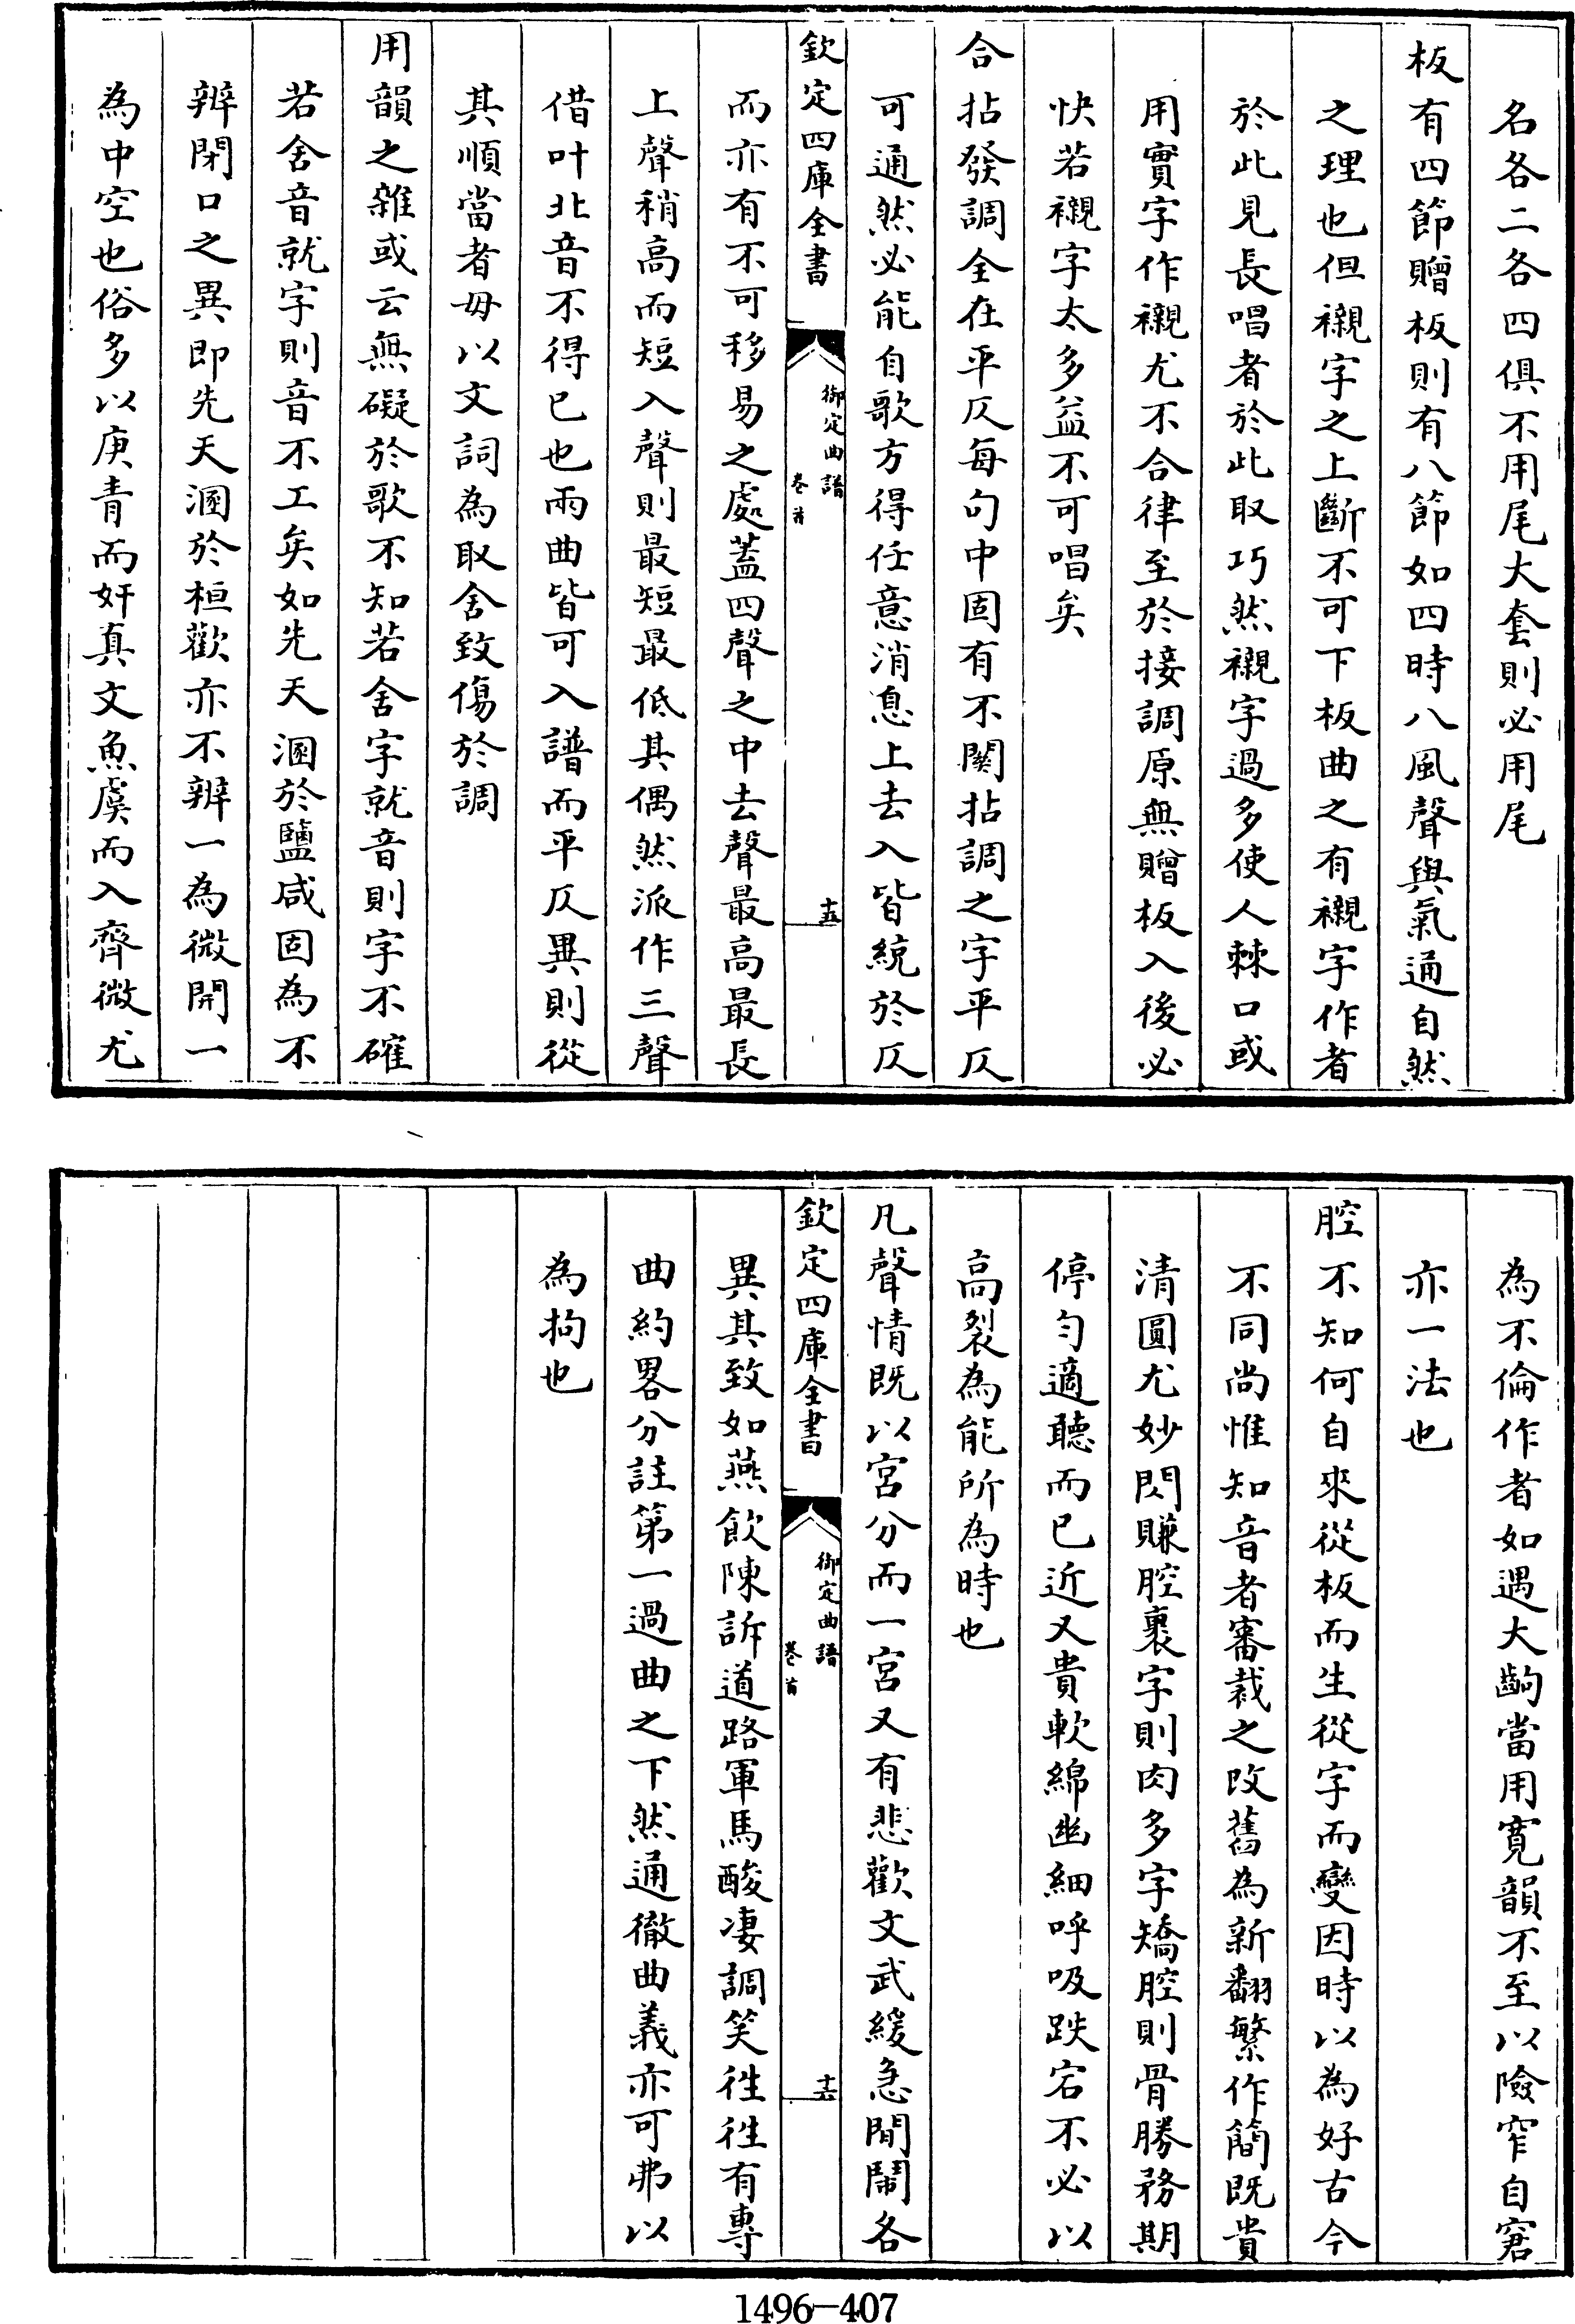 名各二各四俱不用尾大套則必用尾
板有四節贈板則有八節如四時八風聲與氣通自然
之理也但襯字之上斷不可下板曲之有襯字作者
於此見長唱者於此取巧然襯字過多使人棘口或
用實字作襯尤不合律至於接調原無贈板入後必
快若襯字太多益不可唱矣
合拈發調全在平仄每句中固有不關拈調之字平仄
可通然必能自歌方得任意消息上去入皆統於仄
欽定四庫全書
御定曲譜
卷首
十五
而亦有不可移易之處蓋四聲之中去聲最高最長
上聲稍高而短入聲則最短最低其偶然派作三聲
借叶北音不得已也兩曲皆可入譜而平仄異則從
其順當者毋以文詞為取舍致傷於調
用韻之雜或云無礙於歌不知若舍字就音則字不確
若舍音就字則音不工矣如先天溷於鹽咸固為不
辨閉口之異即先天溷於桓歡亦不辨一為微開一
為中空也俗多以庚青而奸真文魚虞而入齊微尤
為不倫作者如遇大齣當用寬韻不至以險窄自窘
亦一法也
腔不知何自來從板而生從字而變因時以為好古今
不同尚惟知音者審裁之改舊為新翻繁作簡既貴
清圓尤妙閃賺腔裹字則肉多字矯腔則骨勝務期
停勻適聽而已近又貴軟綿幽細呼吸跌宕不必以
高裂為能所為時也
凡聲情既以宮分而一宮又有悲歡文武緩急閒鬧各
欽定四庫全書
御定曲譜
卷首
十六
異其致如燕飲陳訴道路軍馬酸凄調笑徃徃有專
曲約畧分註第一過曲之下然通徹曲義亦可弗以
為拘也
1496—407